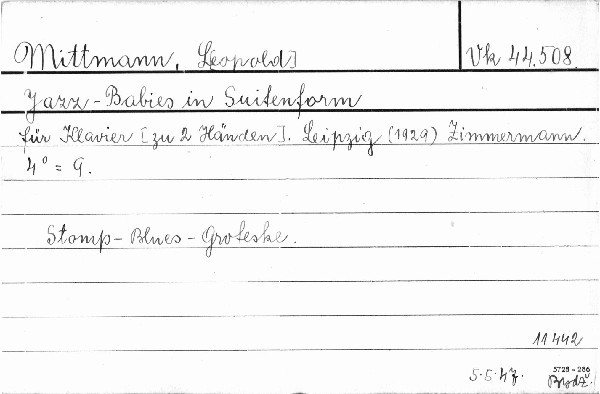 Mittmann, Leopold] Vk 44.508
Jazz-Babies in Suitenform
für Klavier [zu 2 Händen]. Leipzig (1929) Zimmermann.
4° = 9.
Stomp-Blues-Groteske.
11442
5.5.47. 5728-286